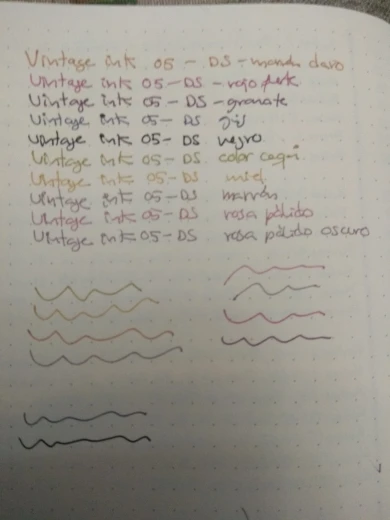 Vintage ink 05 - DS - marrón claro
Vintage ink 05 - DS - rojo
Vintage ink 05 - DS - granate
Vintage ink 05 - DS gris
Vintage ink 05 - DS negro
Vintage ink 05 - DS color caqui
Vintage ink 05 - DS miel
Vintage ink 05 - DS marrón
Vintage ink 05 - DS rosa pálido
Vintage ink 05 - DS rosa pálido oscuro